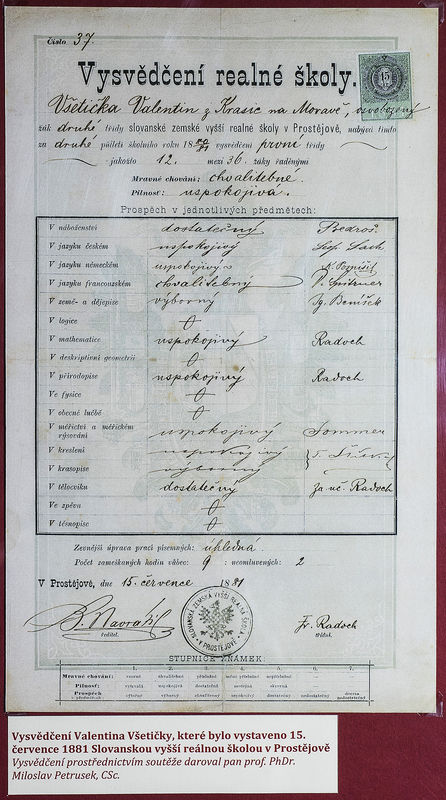 Číslo 37.
15
Vysvědčení realné školy.
Všetička Valentin z Krasic na Moravě, osvobozený
žák druhé třídy slovanské zemské vyšší realné školy v Prostějově, nabývá tímto
za druhé půlletí školního roku 1880/81 vysvědčení první třídy
jakožto 12. mezi 36 žáky řaděnými
Mravné chování: chvalitebné.
Pilnosť: uspokojivá.
Prospěch v jednotlivých předmětech:
V náboženství dostatečný
V jazyku českém uspokojivý
V jazyku německém uspokojivý
V jazyku francouzském chvalitebný
V země- a dějepise výborný Beníšek
V logice 0
V mathematice uspokojivý Radoch
V deskriptivní geometrii 0
V přírodopise uspokojivý Radoch
Ve fysice 0
V obecné lučbě 0
V měřictví a měřickém rýsování uspokojivý Sommer
V kreslení uspokojivý
V krasopise výborný
V tělocviku dostatečný Za uč. Radoch
Ve zpěvu 0
V těsnopise 0
Zevnější úprava prací písemných: úhledná.
Počet zameškaných hodin vůbec: 9 neomluvených: 2
V Prostějově, dne 15. července 1881
SLOVANSKÁ ZEMSKÁ VYŠŠÍ REALNÁ ŠKOLA V PROSTĚJOVĚ
B. Navrátil Fr. Radoch
ředitel. třídní.
STUPNICE ZNÁMEK:
1. 2. 3. 4. 5. 6. 7.
Mravné chování:
Pilnosť:
Prospěch v předmětech
Vysvědčení Valentina Všetičky, které bylo vystaveno 15.
července 1881 Slovanskou vyšší reálnou školou v Prostějově
Vysvědčení prostřednictvím soutěže daroval pan prof. PhDr.
Miloslav Petrusek, CSc.